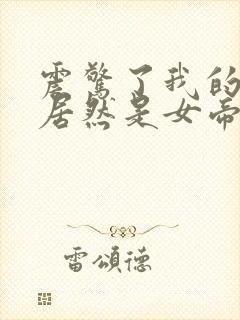 震驚了我的
居然是女帝
雷頌德